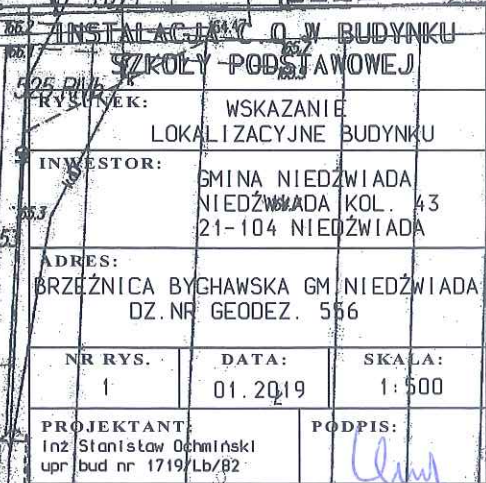 INSTALACJA C.O.W BUDYNKU
SZKOŁY PODSTAWOWEJ
525 RIVb
RYSUNEK:
WSKAZANIE
LOKALIZACYJNE BUDYNKU
INWESTOR:
GMINA NIEDŹWIADA
NIEDŹWIADA KOL. 43
21-104 NIEDŹWIADA
ADRES:
BRZEŹNICA BYCHAWSKA GM NIEDŹWIADA
DZ.NR GEODEZ. 556
NR RYS.
DATA:
SKALA:
1
01.2019
1:500
PROJEKTANT:
PODPIS:
inż Stanisław Ochmiński
upr bud nr 1719/Lb/82